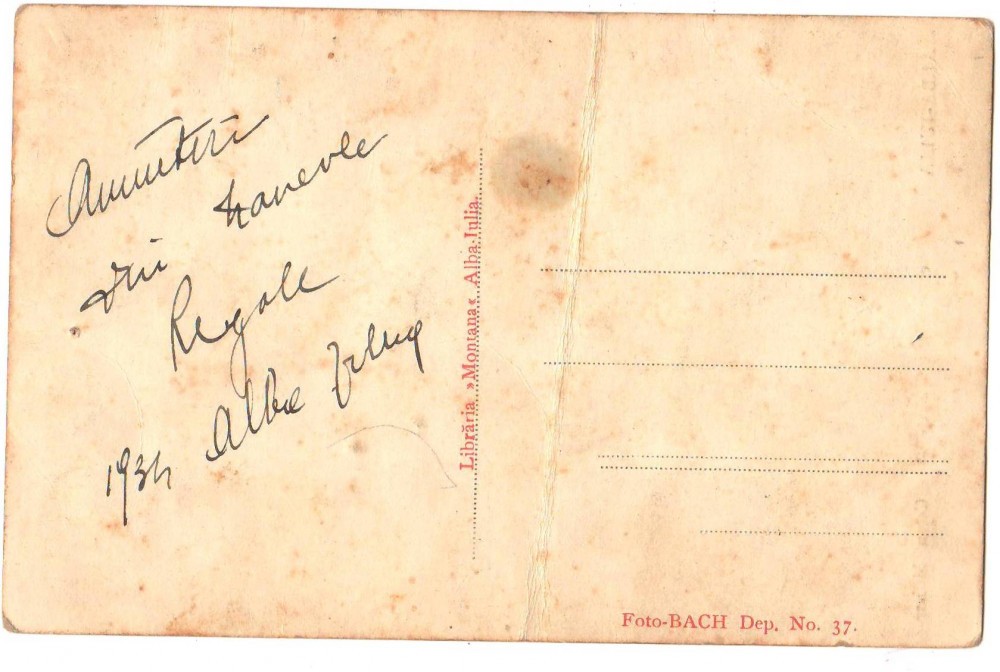 Amintiri
din Manevre
Regale
1934 Alba Iulia
Librăria »Montana« Alba-Iulia.
Foto-BACH Dep. No. 37.